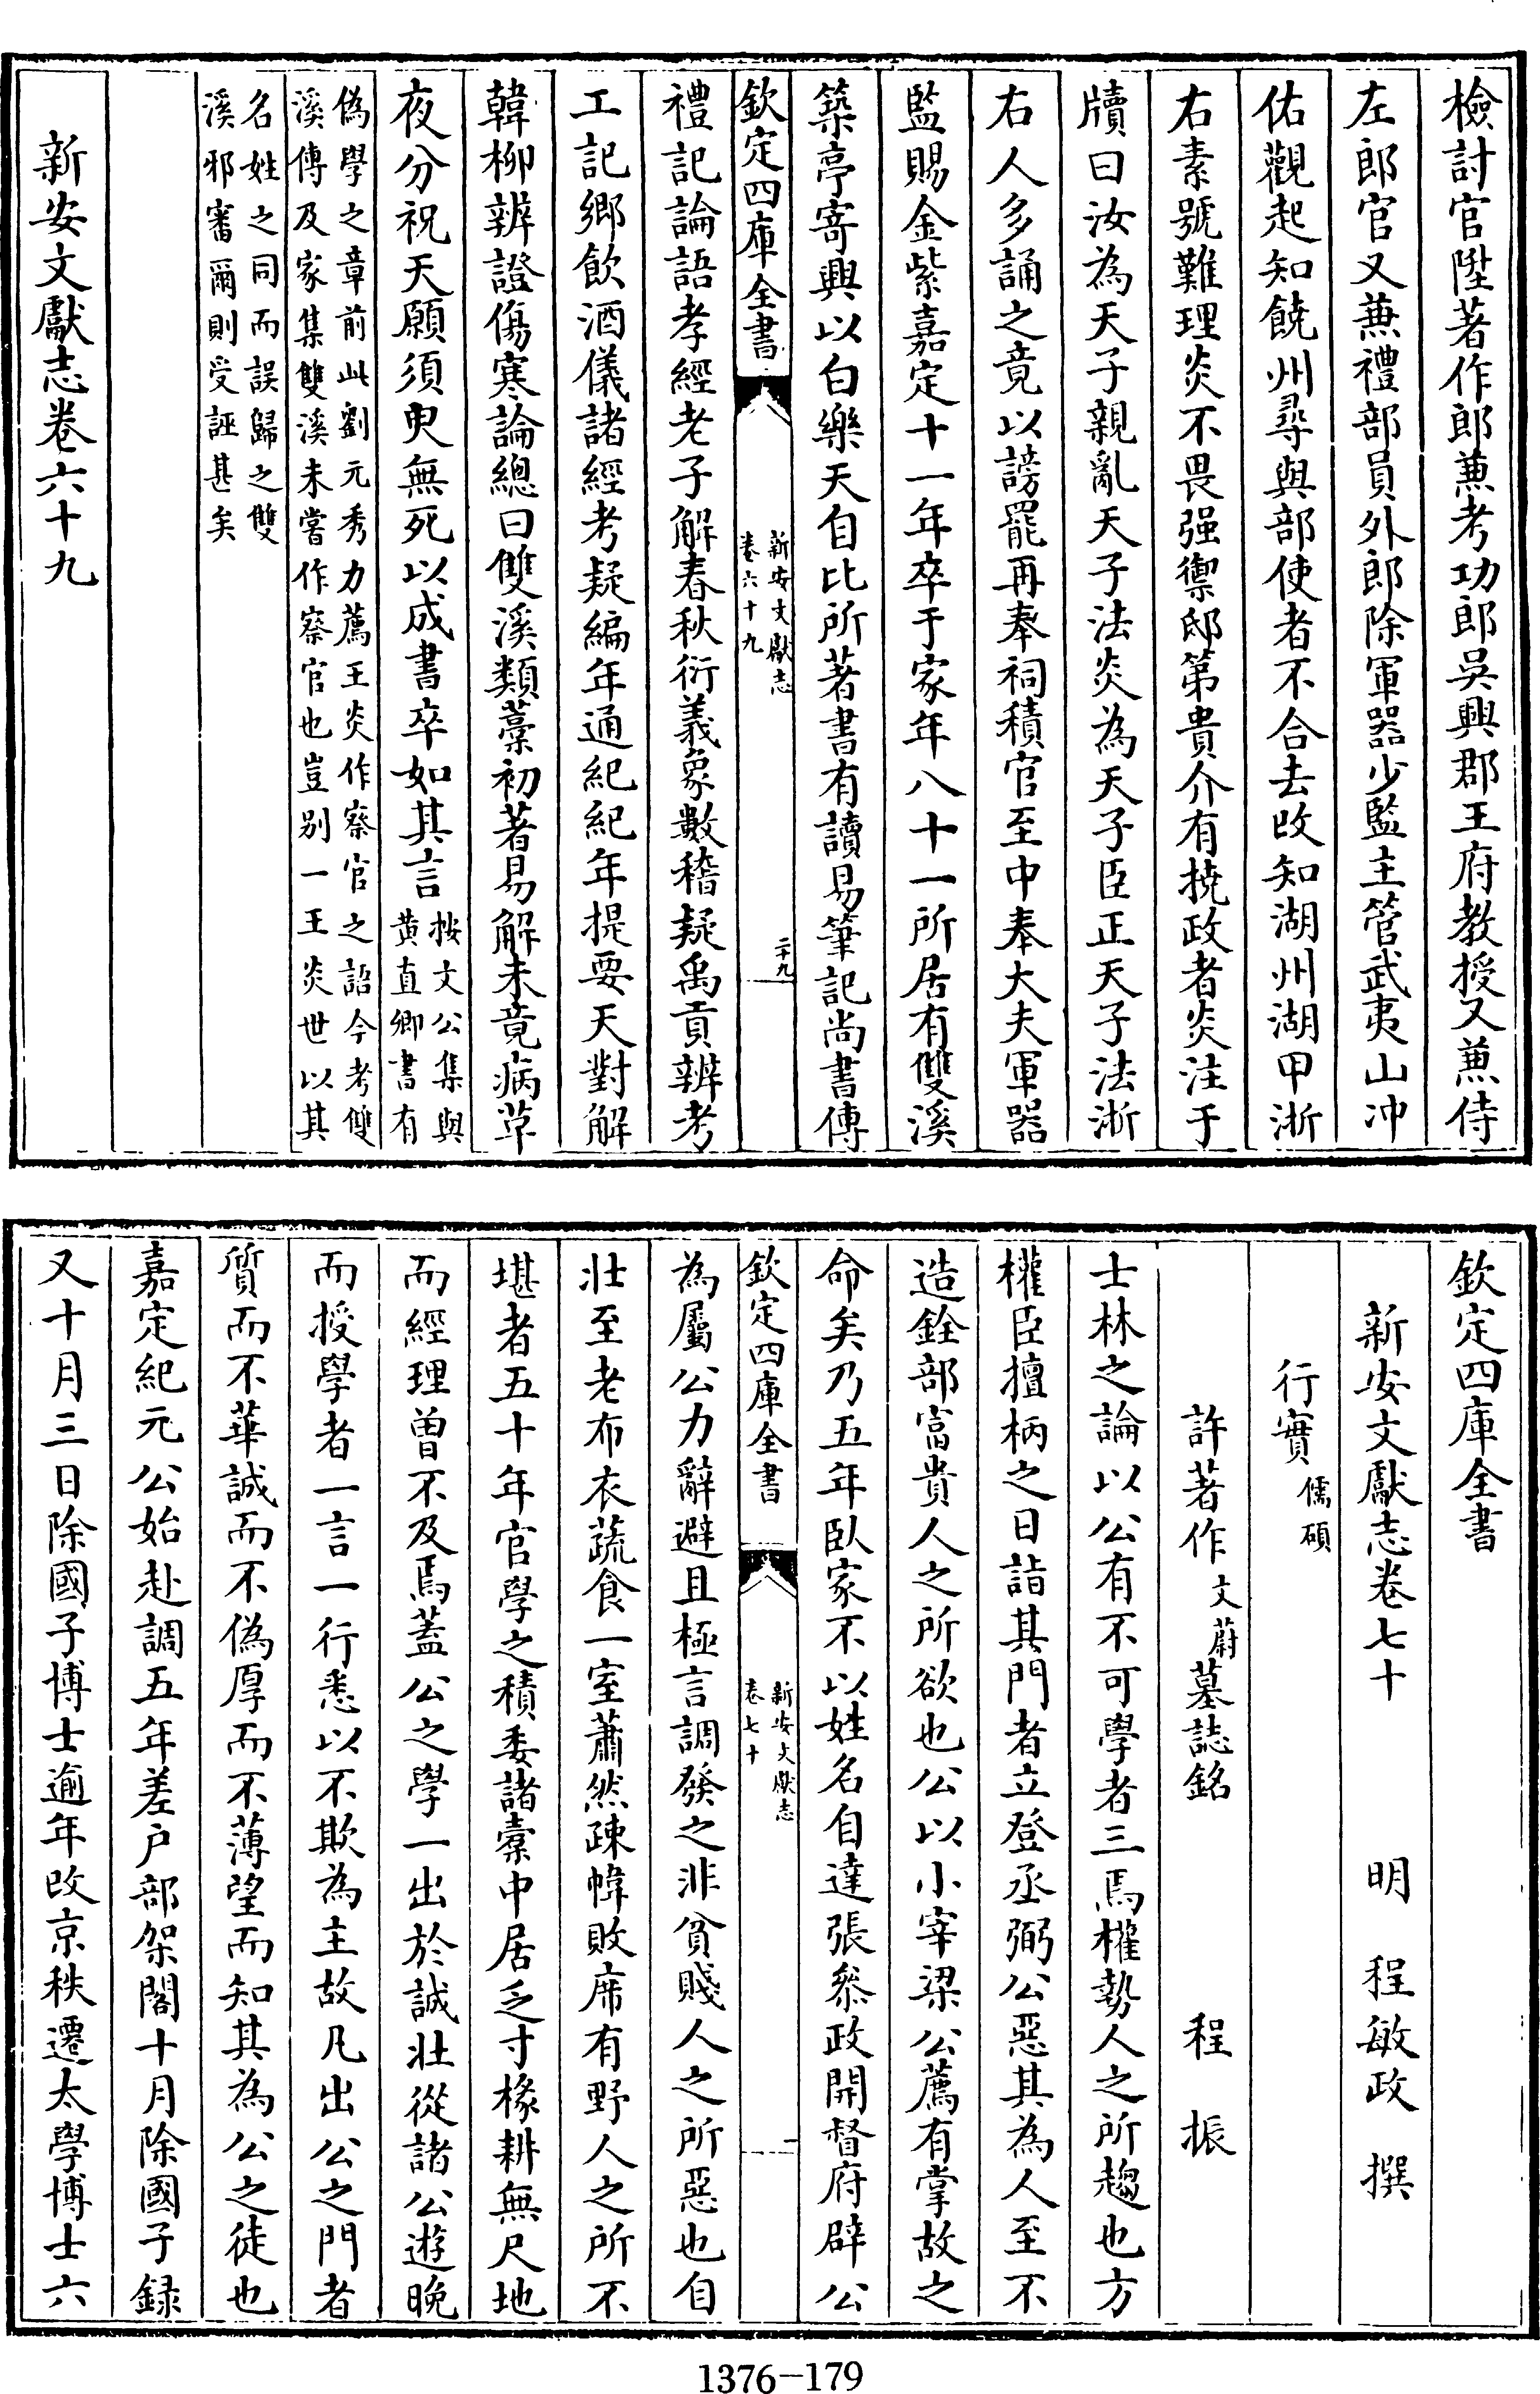 檢討官陞著作郎兼考功郎吳興郡王府教授又兼侍
左郎官又兼禮部員外郎除軍器少監主管武夷山冲
佑觀起知饒州尋與部使者不合去改知湖州湖甲浙
右素號難理炎不畏强禦邸第貴介有撓政者炎注于
牘曰汝為天子親亂天子法炎為天子臣正天子法浙
右人多誦之竟以謗罷再奉祠積官至中奉大夫軍器
監賜金紫嘉定十一年卒于家年八十一所居有雙溪
築亭寄興以白樂天自比所著書有讀易筆記尚書傳
欽定四庫全書
新安文獻志
卷六十九
二十九
禮記論語孝經老子解春秋衍義象數稽疑禹貢辨考
工記鄉飲酒儀諸經考疑編年通紀紀年提要天對解
韓柳辨證傷寒論總曰雙溪類藁初著易解未竟病草
夜分祝天願須臾無死以成書卒如其言
按文公集與
黄直卿書有
偽學之章前此劉元秀力薦王炎作察官之詔今考雙
溪傳及家集雙溪未嘗作察官也豈别一王炎世以其
名姓之同而誤歸之雙
溪邪審爾則受誣甚矣
新安文獻志卷六十九
欽定四庫全書
新安文獻志卷七十
明 程敏政 撰
行實 儒碩
許著作 文蔚 墓誌銘 程振
士林之論以公有不可學者三焉權勢人之所趨也方
權臣擅柄之日詣其門者立登丞弼公惡其為人至不
造銓部富貴人之所欲也公以小宰梁公薦有掌故之
命矣乃五年臥家不以姓名自達張叅政開督府辟公
欽定四庫全書
新安文獻志
卷七十
一
為屬公力辭避且極言調發之非貧賤人之所惡也自
壯至老布衣蔬食一室蕭然疎幃敗席有野人之所不
堪者五十年官學之積委諸橐中居乏寸椽耕無尺地
而經理曾不及焉蓋公之學一出於誠壯從諸公遊晚
而授學者一言一行悉以不欺為主故凡出公之門者
質而不華誠而不偽厚而不薄望而知其為公之徒也
嘉定紀元公始赴調五年差户部架閣十月除國子録
又十月三日除國子博士逾年改京秩遷太學博士六
1376-179